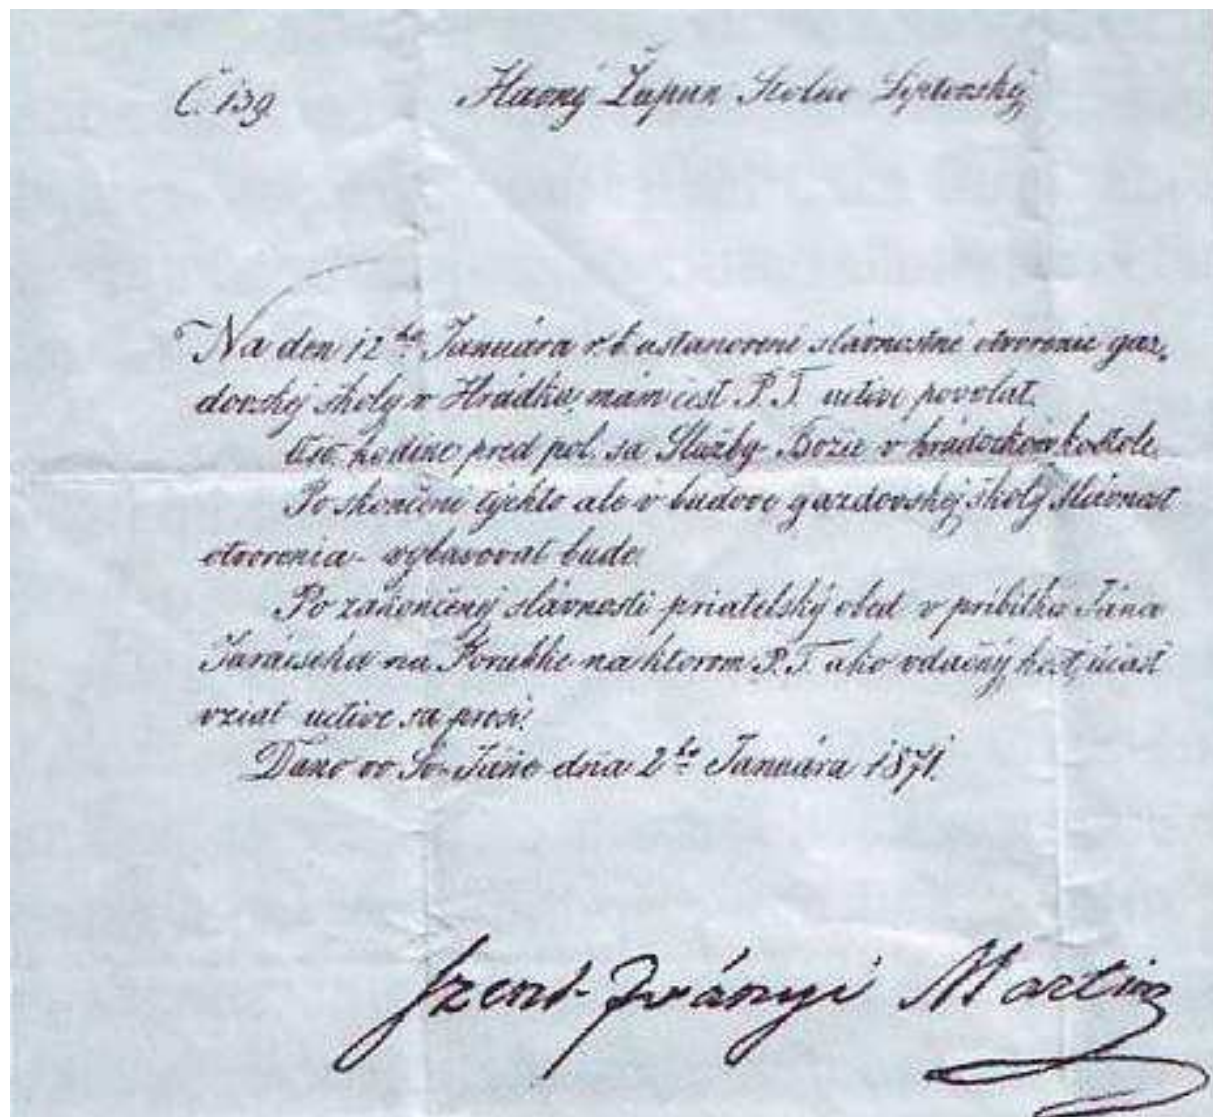 Č. 139
Hlavný Župan Stolice Liptovskéj
Na den 12ho Januára r. b. ustanovené slávnostné otvorenie gaz-
dovskéj školy v Hrádku, mám česť P. T. uctive povolať.
hodine pred pol. sa Služby Božie v hrádockom kostole.
Po skončení týchto ale v budove gazdovskéj školy slávnosť
otvorenia vybavovať bude.
Po zakončenéj slávnosti priatelský obed v príbitku Jána
na Porubke na ktorom P. T. ako vďačný hosť, účasť
vziať uctive sa prosí.
Dáno vo Sv. Jáne dňa 2ho Januára 1871.
Szent-Iványi Martin